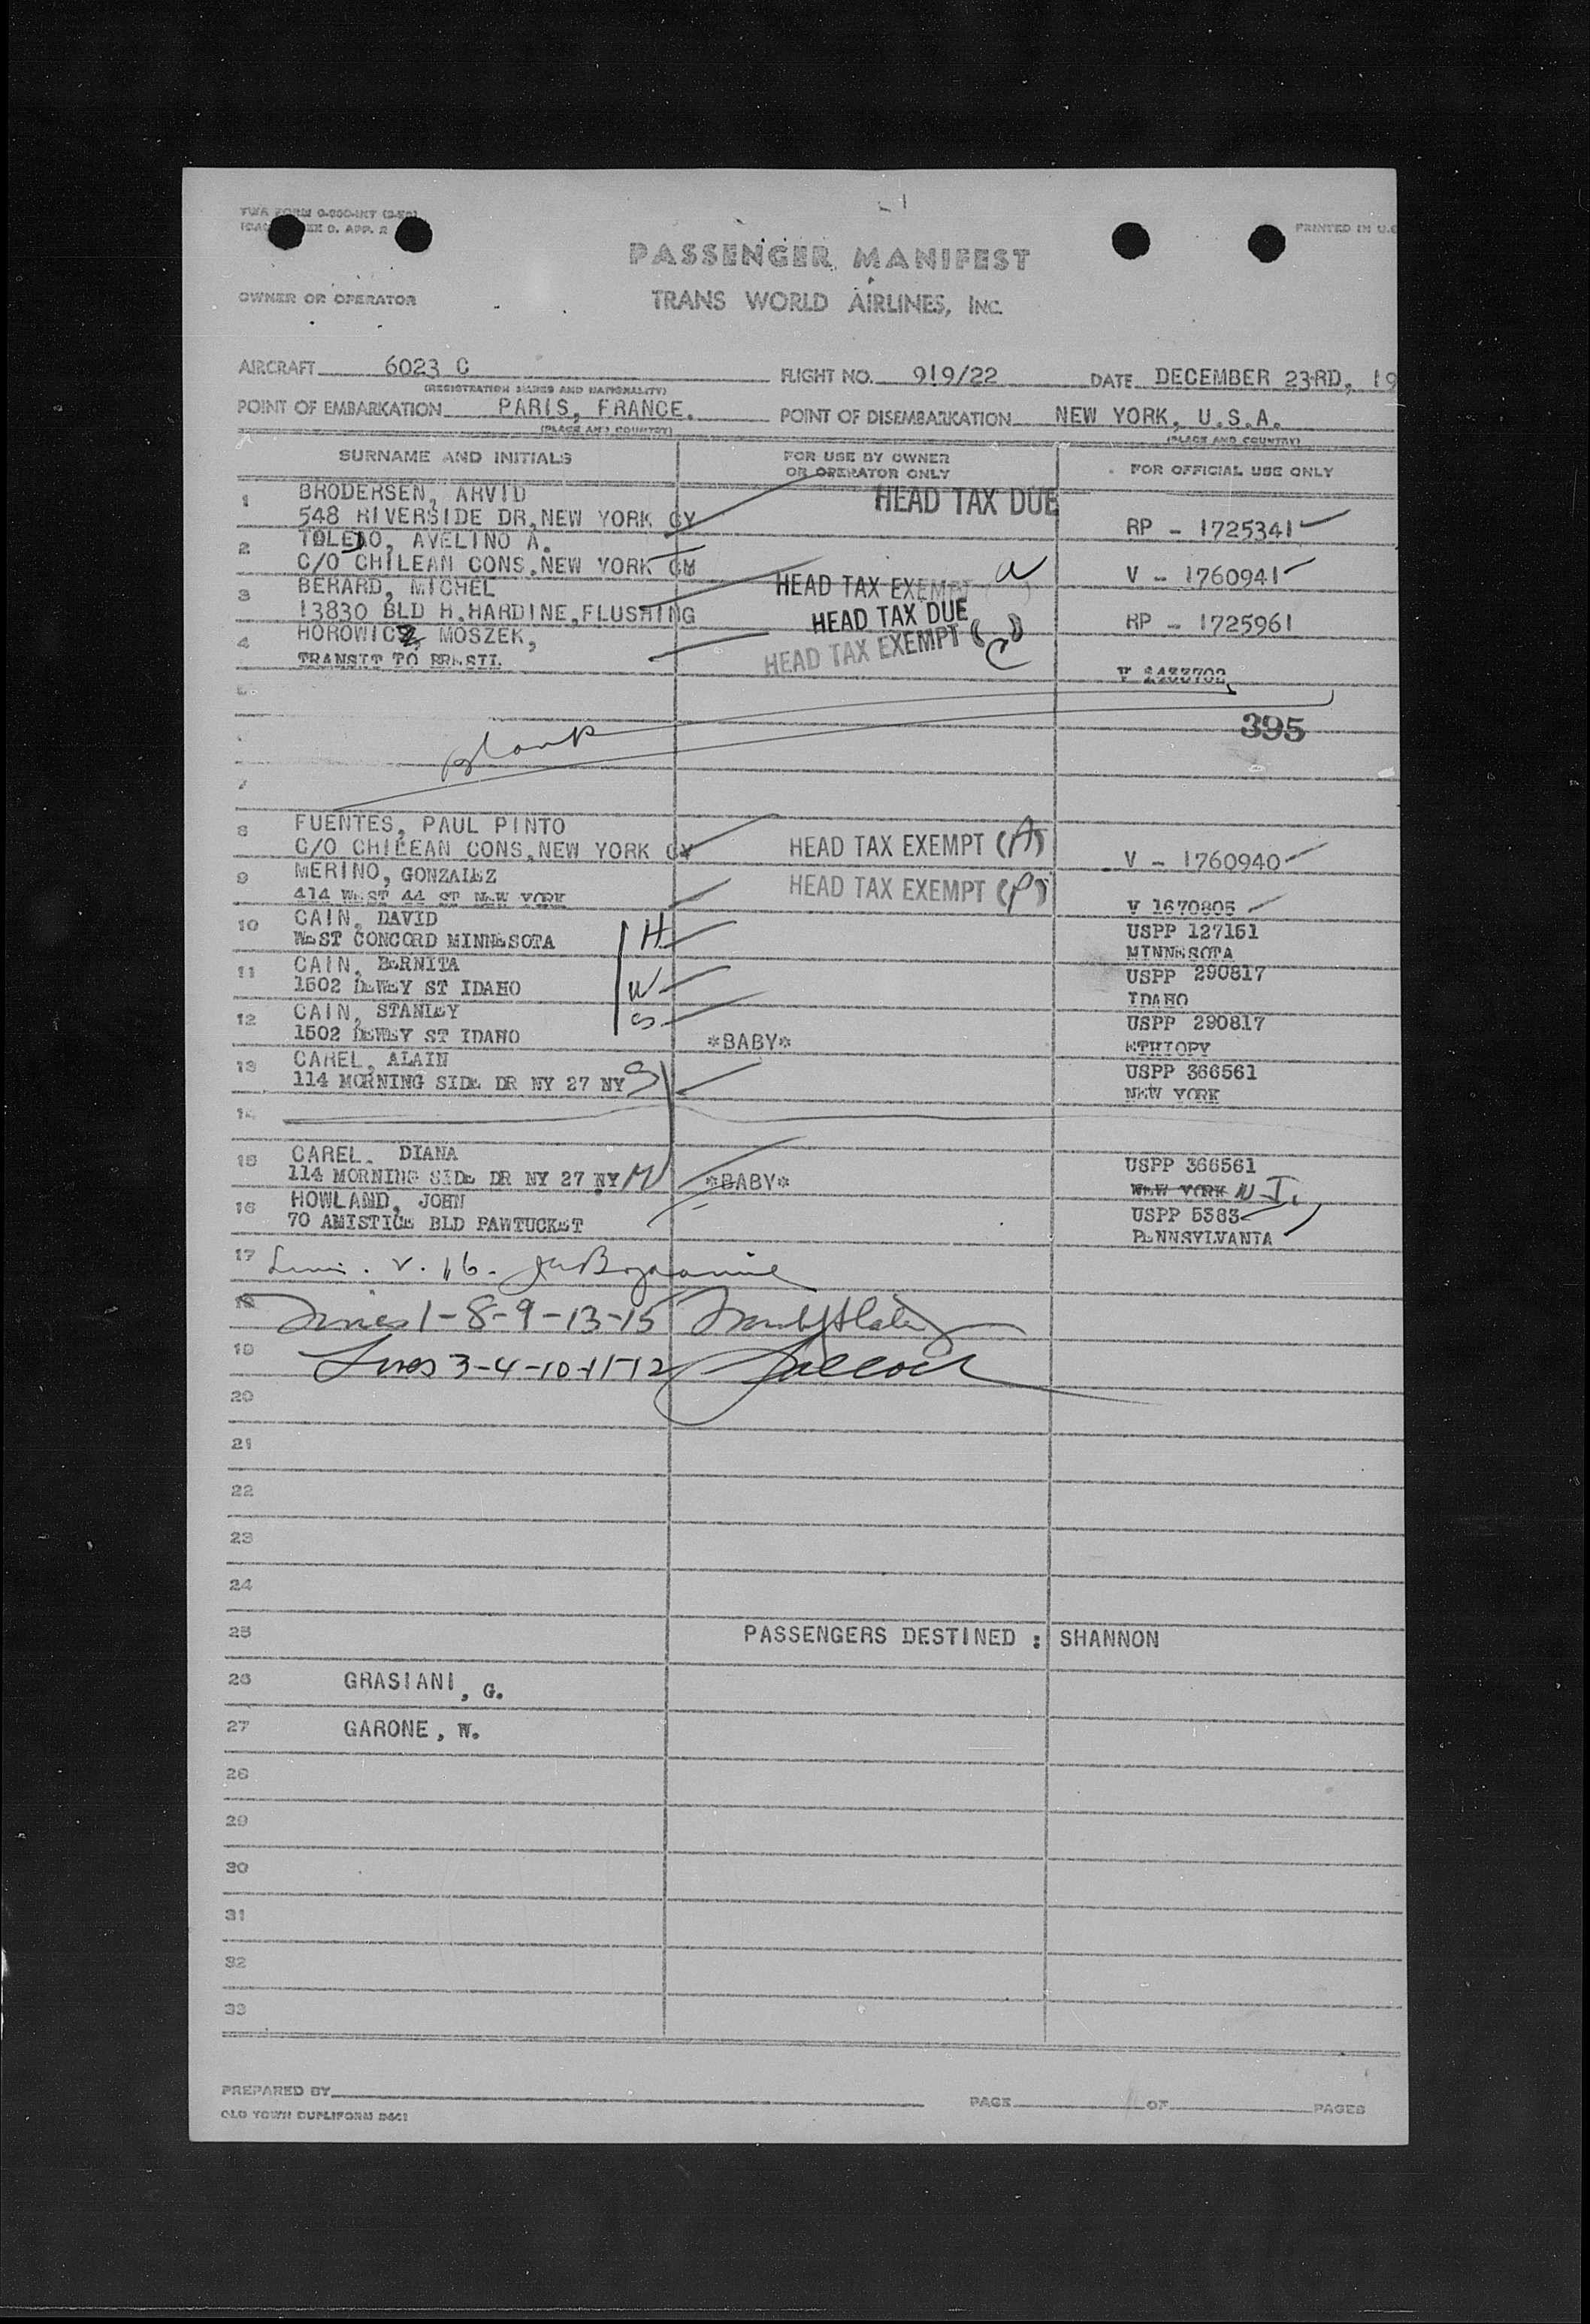 PASSENGER MANIFEST
PRINTED IN U.S
OWNER OR OPERATOR
TRANS WORLD AIRLINES, INC.
AIRCRAFT 6023 C FLIGHT NO. 919/22 DATE DECEMBER 23RD, 19
(REGISTRATION MARKS AND NATIONALITY)
POINT OF EMBARKATION PARIS, FRANCE. POINT OF DISEMBARKATION NEW YORK, U.S.A.
(PLACE AND COUNTRY) (PLACE AND COUNTRY)
SURNAME AND INITIALS FOR USE BY OWNER OR OPERATOR ONLY FOR OFFICIAL USE ONLY
1 BRODERSEN, ARVID HEAD TAX DUE
548 RIVERSIDE DR, NEW YORK CY RP - 1725341
2 TOLEDO, AVELINO A.
C/O CHILEAN CONS, NEW YORK CY V - 1760941
3 BERARD, MICHEL HEAD TAX EXEMPT
13830 BLD H. HARDINE, FLUSHING HEAD TAX DUE RP - 1725961
4 HOROWICZ, MOSZEK, HEAD TAX EXEMPT (C)
TRANSIT TO BRESIL V 1433702
395
Blank
7
8 FUENTES, PAUL PINTO
C/O CHILEAN CONS, NEW YORK CY HEAD TAX EXEMPT (A) V - 1760940
9 MERINO, GONZALEZ HEAD TAX EXEMPT (P)
414 WEST 44 ST NEW YORK V 1670805
10 CAIN, DAVID H USPP 127151
WEST CONCORD MINNESOTA MINNESOTA
11 CAIN, BERNITA W USPP 290817
1502 DEWEY ST IDAHO IDAHO
12 CAIN, STANLEY S USPP 290817
1502 DEWEY ST IDAHO *BABY* ETHIOPY
13 CAREL, ALAIN USPP 366561
114 MORNING SIDE DR NY 27 NY S NEW YORK
14
15 CAREL, DIANA USPP 366561
114 MORNING SIDE DR NY 27 NY M *BABY* NEW YORK N.J.
16 HOWLAND, JOHN USPP 5383
70 AMISTICE BLD PAWTUCKET PENNSYLVANIA
17
18 Lines 1-8-9-13-15
19 Lines 3-4-10-11-12
20
21
22
23
24
25 PASSENGERS DESTINED : SHANNON
26 GRASIANI, G.
27 GARONE, W.
28
29
30
31
32
33
PREPARED BY PAGE OF PAGES
OLD TOWN DUPLIFORM